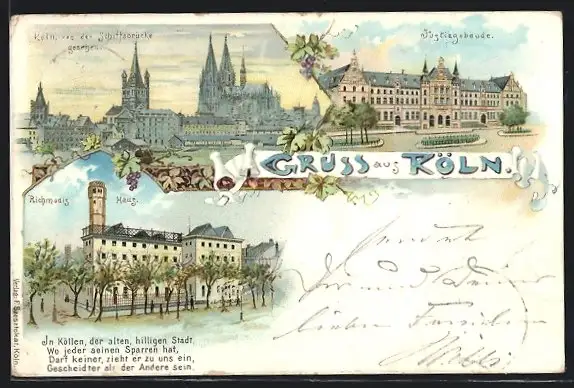 Köln, von der Schiffbrücke
gesehen.
Justizgebäude.
GRUSS aus KÖLN.
Richmodis Haus.
In Köllen, der alten, hilligen Stadt,
Wo jeder seinen Sparren hat,
Darf keiner, zieht er zu uns ein,
Gescheidter als der Andere sein.
Verlag: Köln.
und Deiner
lieben Familie